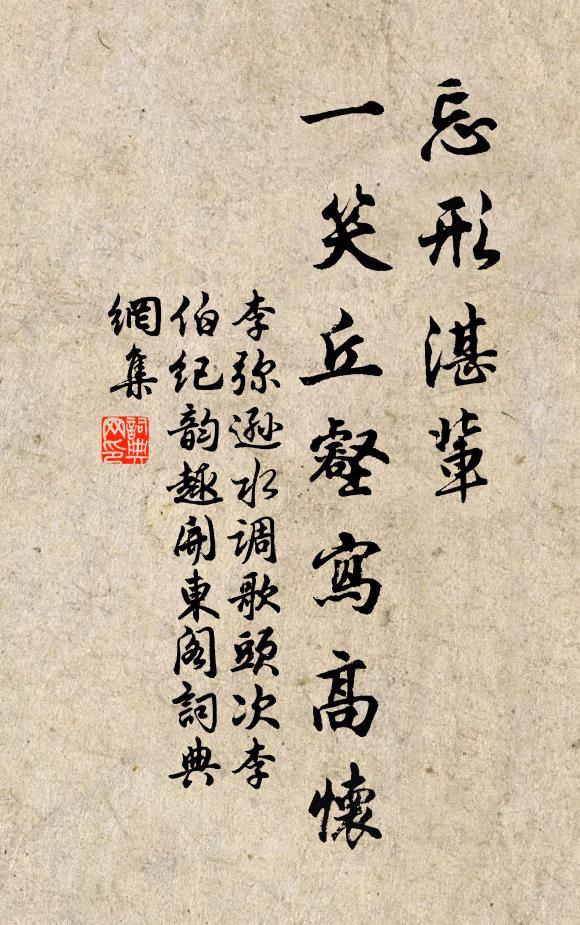 忘形湛輩
一笑丘壑寫高懷
李弥遜水调歌頭次李
伯纪韵趣開東阁詞典
網集
詞典
网印